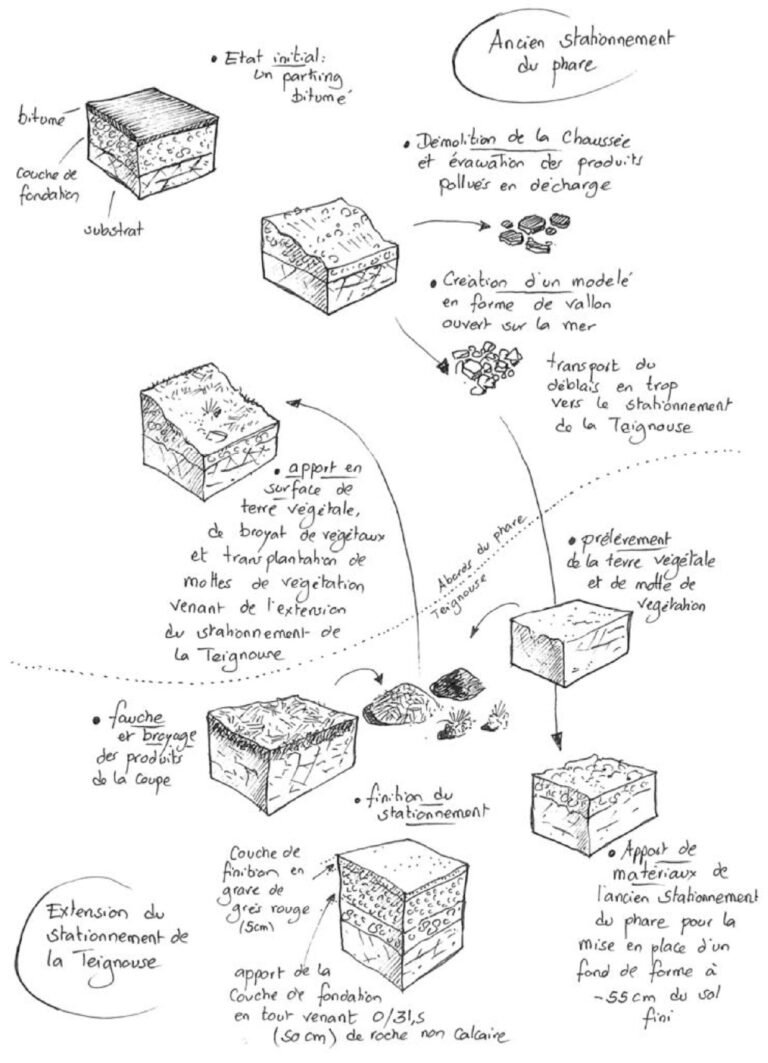 Ancien stationnement
du phare
• Etat initial:
un parking
bitumé
bitume
Couche de
fondation
substrat
• Démolition de la Chaussée
et évacuation des produits
pollués en décharge
• Création d'un modelé
en forme de vallon
ouvert sur la mer
transport du
déblais en trop
vers le stationnement
de la Teignouse
• apport en
surface de
terre végétale,
de broyat de végétaux
et transplantation de
mottes de végétation
venant de l'extension
du stationnement de
la Teignouse
Abords du phare
Teignouse
• prélèvement
de la terre végétale
et de motte de
végétation
• fauche
et broyage
des produits
de la coupe
• finition du
stationnement
Couche de
finition en
grave de
grès rouge
(5cm)
apport de la
Couche de fondation
en tout venant 0/31,5
(50 cm) de roche non calcaire
• Apport de
matériaux de
l'ancien stationnement
du phare pour la
mise en place d'un
fond de forme à
-55 cm du sol
fini
Extension du
stationnement de
la Teignouse